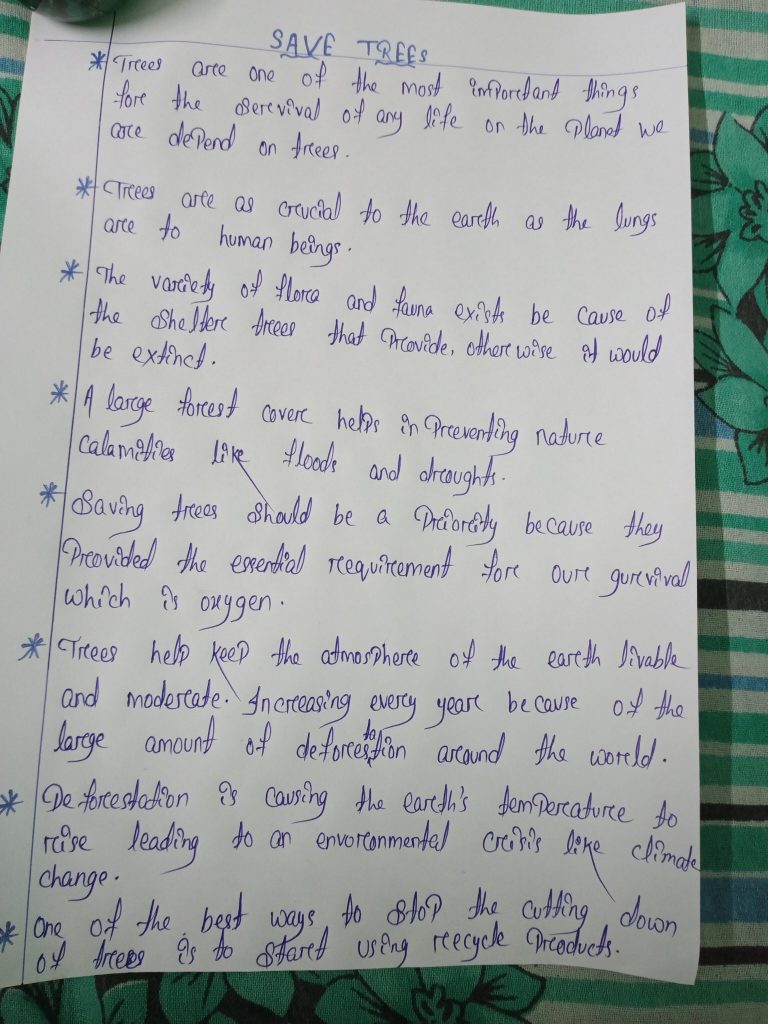 SAVE TREES
* Trees are one of the most important things
fore the serevival of any life on the planet we
are depend on trees.
* Trees are as crucial to the earth as the lungs
are to human beings.
* The variety of flora and fauna exists be cause of
the shelter trees that provide, other wise it would
be extinct.
* A large forest cover helps in preventing nature
calamities like floods and droughts.
* Saving trees should be a priority because they
provided the essential requirement fore oure gurvival
which is oxygen.
* Trees help keep the atmosphere of the earth livable
and moderate. Increasing every year because of the
large amount of deforestation around the world.
* De forestation is causing the earth's temperature to
rise leading to an envoronmental crisis like climate
change.
* One of the best ways to stop the cutting down
of trees is to start using recycle products.